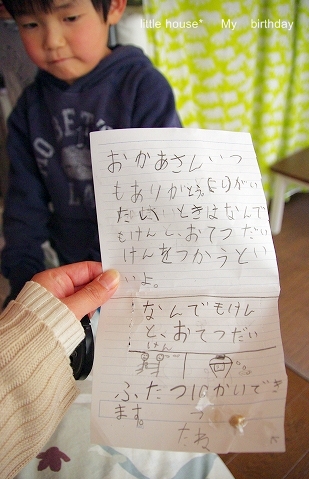 little house* My birthday
おかあさんいつ
もありがとう。
たいいときはなんで
もけんと、おてつだい
けんをつかうとい
いよ。
なんでもけん
と、おてつだい
けん
ふたつ10かいでき
ます。